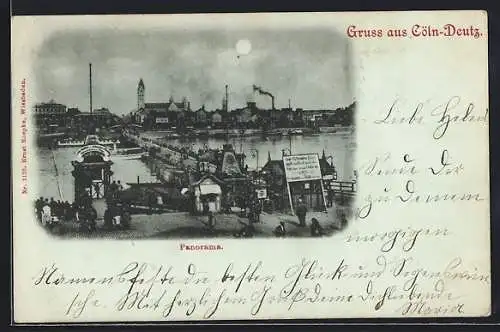 Gruss aus Cöln-Deutz.
Nr. 1155. Ernst Roepke, Wiesbaden.
Panorama.
Liebe Helen
Sende Dir
zu Deinem
morgigen
Namensfeste die besten Glück und Segenswün
sche. Mit herzlichem Gruß Deine Dich liebende
Maria